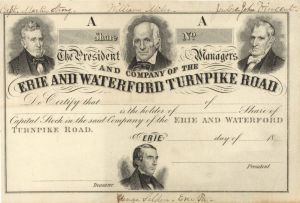 William Miles
Judge John Vincent
A A
Share No
The President Managers
AND COMPANY OF THE
ERIE AND WATERFORD TURNPIKE ROAD
Do Certify that is the holder of of Share of
Capital Stock in the said Company of the ERIE AND WATERFORD
TURNPIKE ROAD.
ERIE day of 18
President
Treasurer
George Selden - Erie Pa.